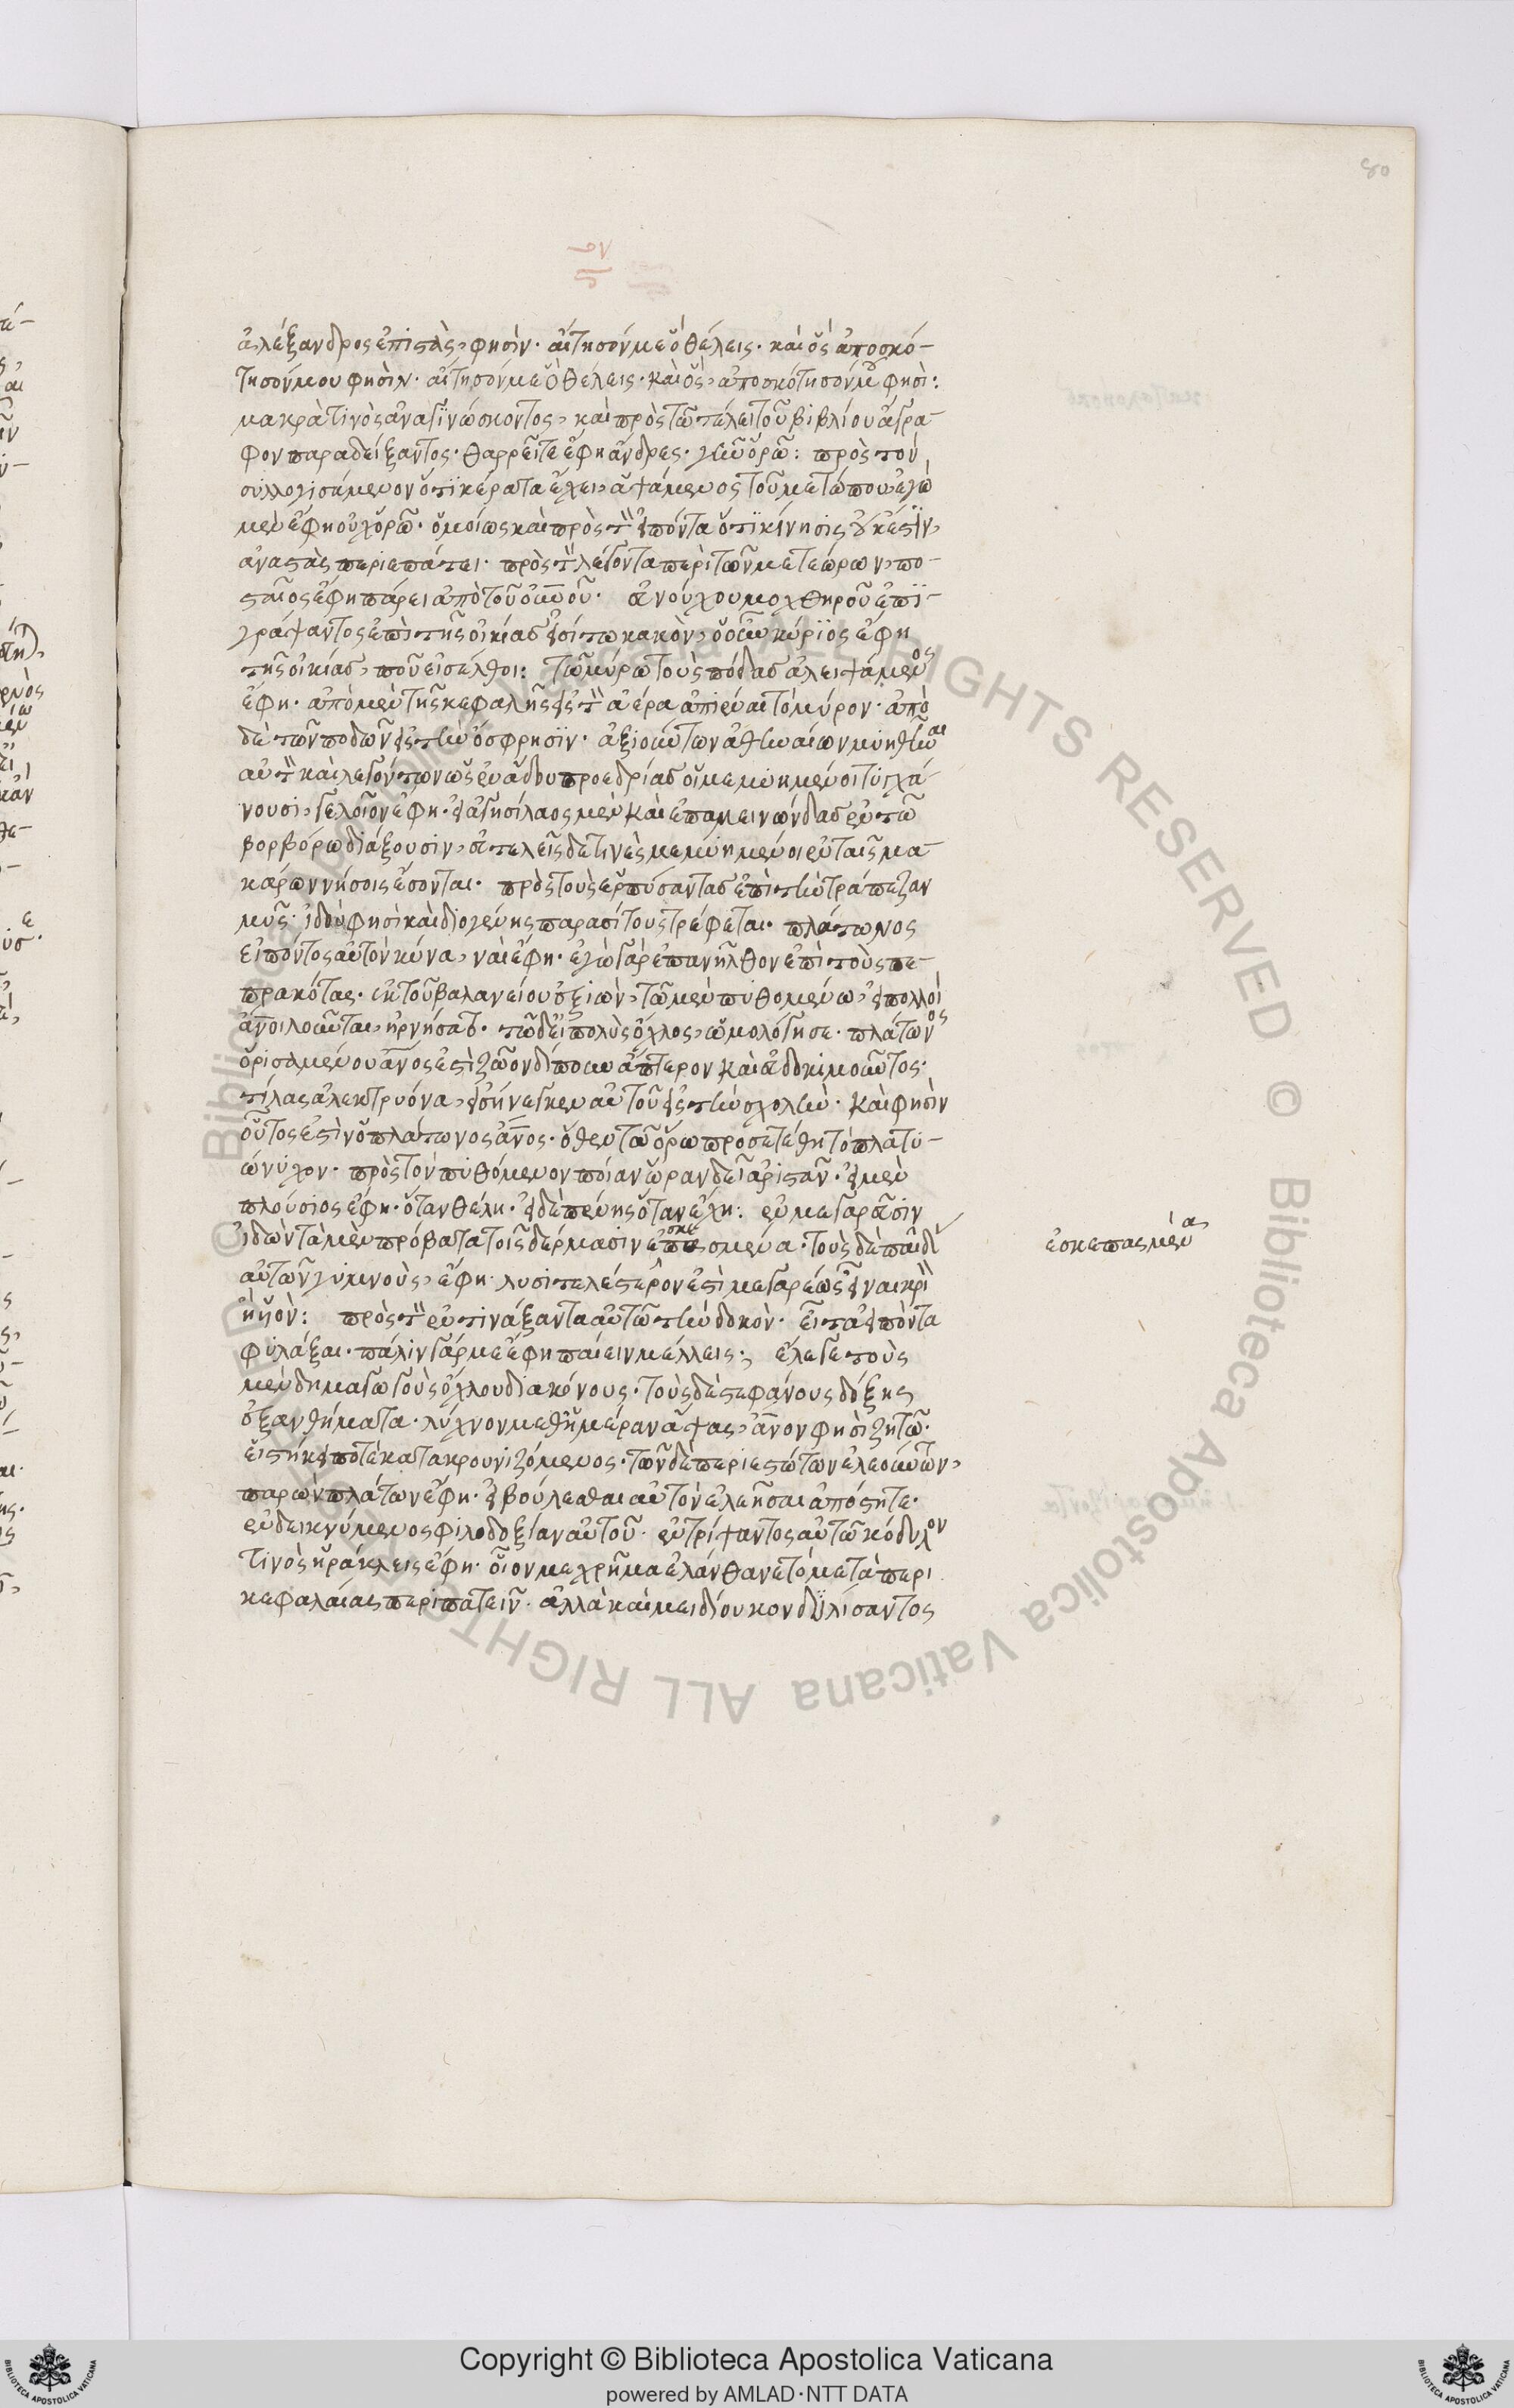 80
ἀλέξανδρος ἐπιστὰς, φησὶν· αἴτησόν με ὃ θέλεις· καὶ ὃς ἀποσκό-
τησόν μου φησὶν· αἴτησόν με ὃ θέλεις· καὶ ὃς, ἀποσκότησόν μου φησὶ:
μακρὰ τινὸς ἀναγινώσκοντος, καὶ πρὸς τῶ τέλει τοῦ βιβλίου ἄγρα-
φον παραδείξαντος· θαρρεῖτε ἔφη ἄνδρες· γῆν ὁρῶ: πρὸς τὸν
συλλογισάμενον ὅτι κέρατα ἔχει, ἁψάμενος τοῦ μετώπου, ἐγὼ
μὲν ἔφη οὐχ ὁρῶ· ὁμοίως καὶ πρὸς τὸν εἰπόντα ὅτι κίνησις οὐκ ἔστιν,
ἀναστὰς περιεπάτει· πρὸς τὸν λέγοντα περὶ τῶν μετεώρων, πο-
σταῖος ἔφη πάρει ἀπὸ τοῦ οὐνοῦ· εὐνούχου μοχθηροῦ ἐπι-
γράψαντος ἐπὶ τῆς οἰκίας εἰσίτω κακὸν, ὁ οὖν κύριος ἔφη
τῆς οἰκίας, ποῦ εἰσέλθοι: τῶ μύρω τοὺς πόδας ἀλειψάμενος
ἔφη· ἀπὸ μὲν τῆς κεφαλῆς εἰς τὸν ἀέρα ἀπιέναι τὸ μύρον· ἀπὸ
δὲ τῶν ποδῶν εἰς τὴν ὄσφρησιν· ἀξιούντων ἀθηναίων μυηθῆναι
αὐτὸν καὶ λεγόντων ὡς ἐν ἅδου προεδρίας οἱ μεμυημένοι τυγχά-
νουσι, γελοῖον ἔφη· εἰ ἀγησίλαος μὲν καὶ ἐπαμεινώνδας ἐν τῶ
βορβόρω διάξουσιν, εὐτελεῖς δέ τινὲς μεμυημένοι ἐν ταῖς μα-
κάρων νήσοις ἔσονται· πρὸς τοὺς ἑρπύσαντας ἐπὶ τὴν τράπεζαν
μῦς· ἰδοὺ φησὶ καὶ διογένης παρασίτους τρέφεται· πλάτωνος
εἰπόντος αὐτὸν κύνα, ναὶ ἔφη· ἐγὼ γὰρ ἐπανῆλθον ἐπὶ τοὺς πε-
πρακότας· ἐκ τοῦ βαλανείου ἐξιὼν, τῶ μὲν πυθομένω, εἰ πολλοὶ
ἄνοι λοῦνται, ἠρνήσατο· τῶ δὲ εἰ πολὺς ὄχλος, ὡμολόγησε· πλάτωνος
ὁρισαμένου ἄνος ἐστὶ ζῶον δίπουν ἄπτερον καὶ εὐδοκιμοῦντος·
τίλας ἀλεκτρυόνα, εἰσήνεγκεν αὐτοῦ εἰς τὴν σχολὴν· καὶ φησὶν
οὗτος ἐστὶν ὁ πλάτωνος ἄνος· ὅθεν τῶ ὅρω προσετέθη τὸ πλατυ-
ώνυχον· πρὸς τὸν πυθόμενον ποίαν ὥραν δεῖ ἀριστᾶν· εἰ μὲν
πλούσιος ἔφη· ὅταν θέλη· εἰ δὲ πένης ὅταν ἔχη: ἐν μεγάροισιν
ἰδὼν τὰ μὲν πρόβατα τοῖς δέρμασιν ἐσκεπασμένα· τοὺς δὲ παῖδας
αὐτῶν γυμνοὺς, ἔφη· λυσιτελέστερον ἐστὶ μεγαρέως εἶναι κριὸν
ἢ υἱὸν: πρὸς τὸν ἐντινάξαντα αὐτῶ τὴν δοκὸν· εἶτα εἰπόντα
φύλαξαι· πάλιν γάρ με ἔφη παίειν μέλλεις· ἔλεγε τοὺς
μὲν δημαγωγοὺς ὄχλου διακόνους· τοὺς δὲ στεφάνους δόξης
ἐξανθήματα· λύχνον μεθ' ἡμέραν ἅψας, ἄνον φησὶ ζητῶ·
εἱστήκει ποτὲ κατακρουνιζόμενος· τῶν δὲ περιεστώτων ἐλεούντων,
παρὼν πλάτων ἔφη· εἰ βούλεσθαι αὐτὸν ἐλεῆσαι ἀπόστητε·
ἐνδεικνύμενος φιλοδοξίαν αὐτοῦ· ἐντρίψαντος αὐτῶ κόνδυλον
τινὸς ἡράκλεις ἔφη· οἷόν με χρῆμα ἐλάνθανε τὸ μετὰ περι
κεφαλαίας περιπατεῖν· ἀλλὰ καὶ μειδίου κονδυλίσαντος
ἐσκεπασμένα
Copyright © Biblioteca Apostolica Vaticana
powered by AMLAD·NTT DATA